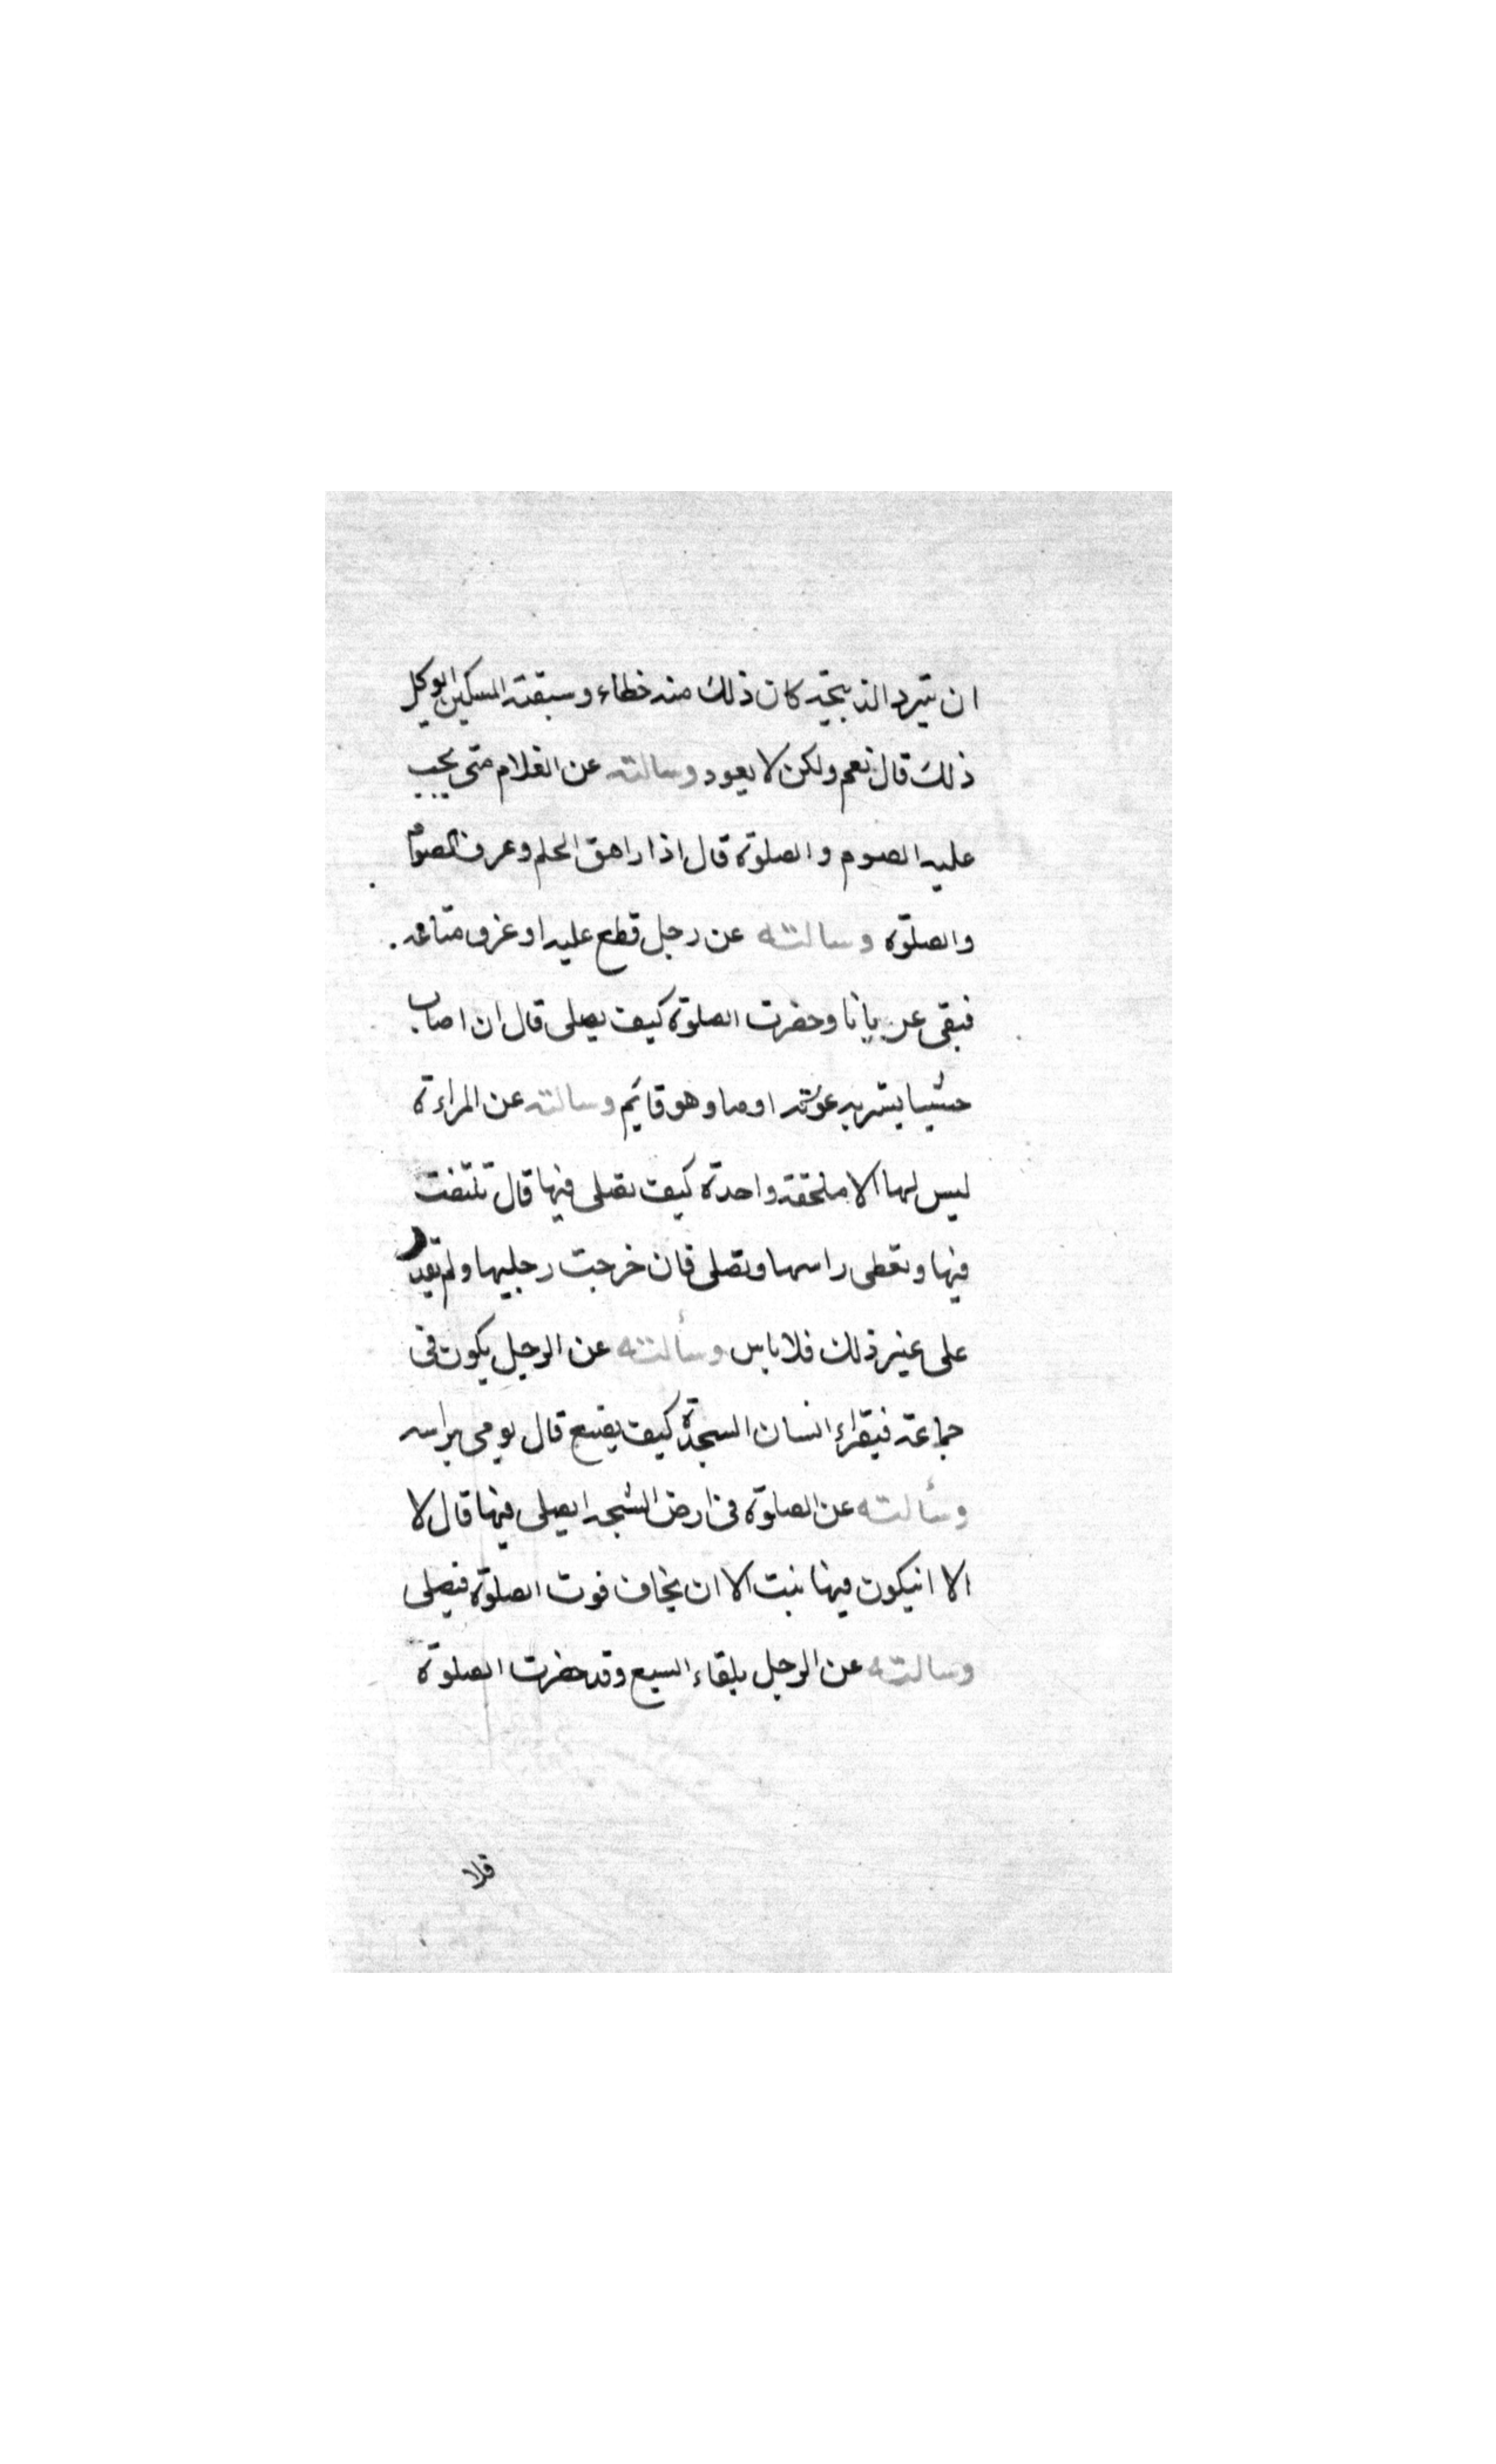 ان تبرد الذبيحة كان ذلك منه خطاء وسبقته السكين ايوكل
ذلك قال نعم ولكن لا يعود وسالته عن الغلام متى يجب
عليه الصوم والصلوة قال اذا راهق الحلم وعرف الصوم
والصلوة وسالته عن رجل قطع عليه او غرق متاعه
فبقى عريانا وحضرت الصلوة كيف يصلى قال ان اصاب
حشيشا يستر به عورته اوما وهو قايم وسالته عن المراءة
ليس لها الا ملحفة واحدة كيف تصلى فيها قال تلتف
فيها وتغطى راسها وتصلى فان خرجت رجليها ولم تقدر
على غير ذلك فلا باس وسألته عن الرجل يكون فى
جماعة فيقراء انسان السجدة كيف يصنع قال يومى براسه
وسألته عن الصلوة فى ارض السبخه ايصلى فيها قال لا
الا انيكون فيها نبت الا ان يخاف فوت الصلوة فيصلى
وسالته عن الرجل يلقاء السبع وقد حضرت الصلوة
فلا